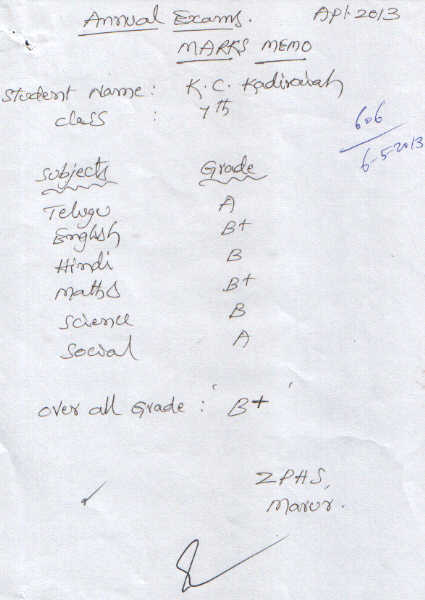 Annual Exams. Apl-2013
MARKS MEMO
Student Name : K. C. Kadiraiah
Class : 7th
606
6-5-2013
Subjects Grade
Telugu A
English B+
Hindi B
Maths B+
Science B
Social A
Over all Grade : 'B+'
ZPHS,
Marur.